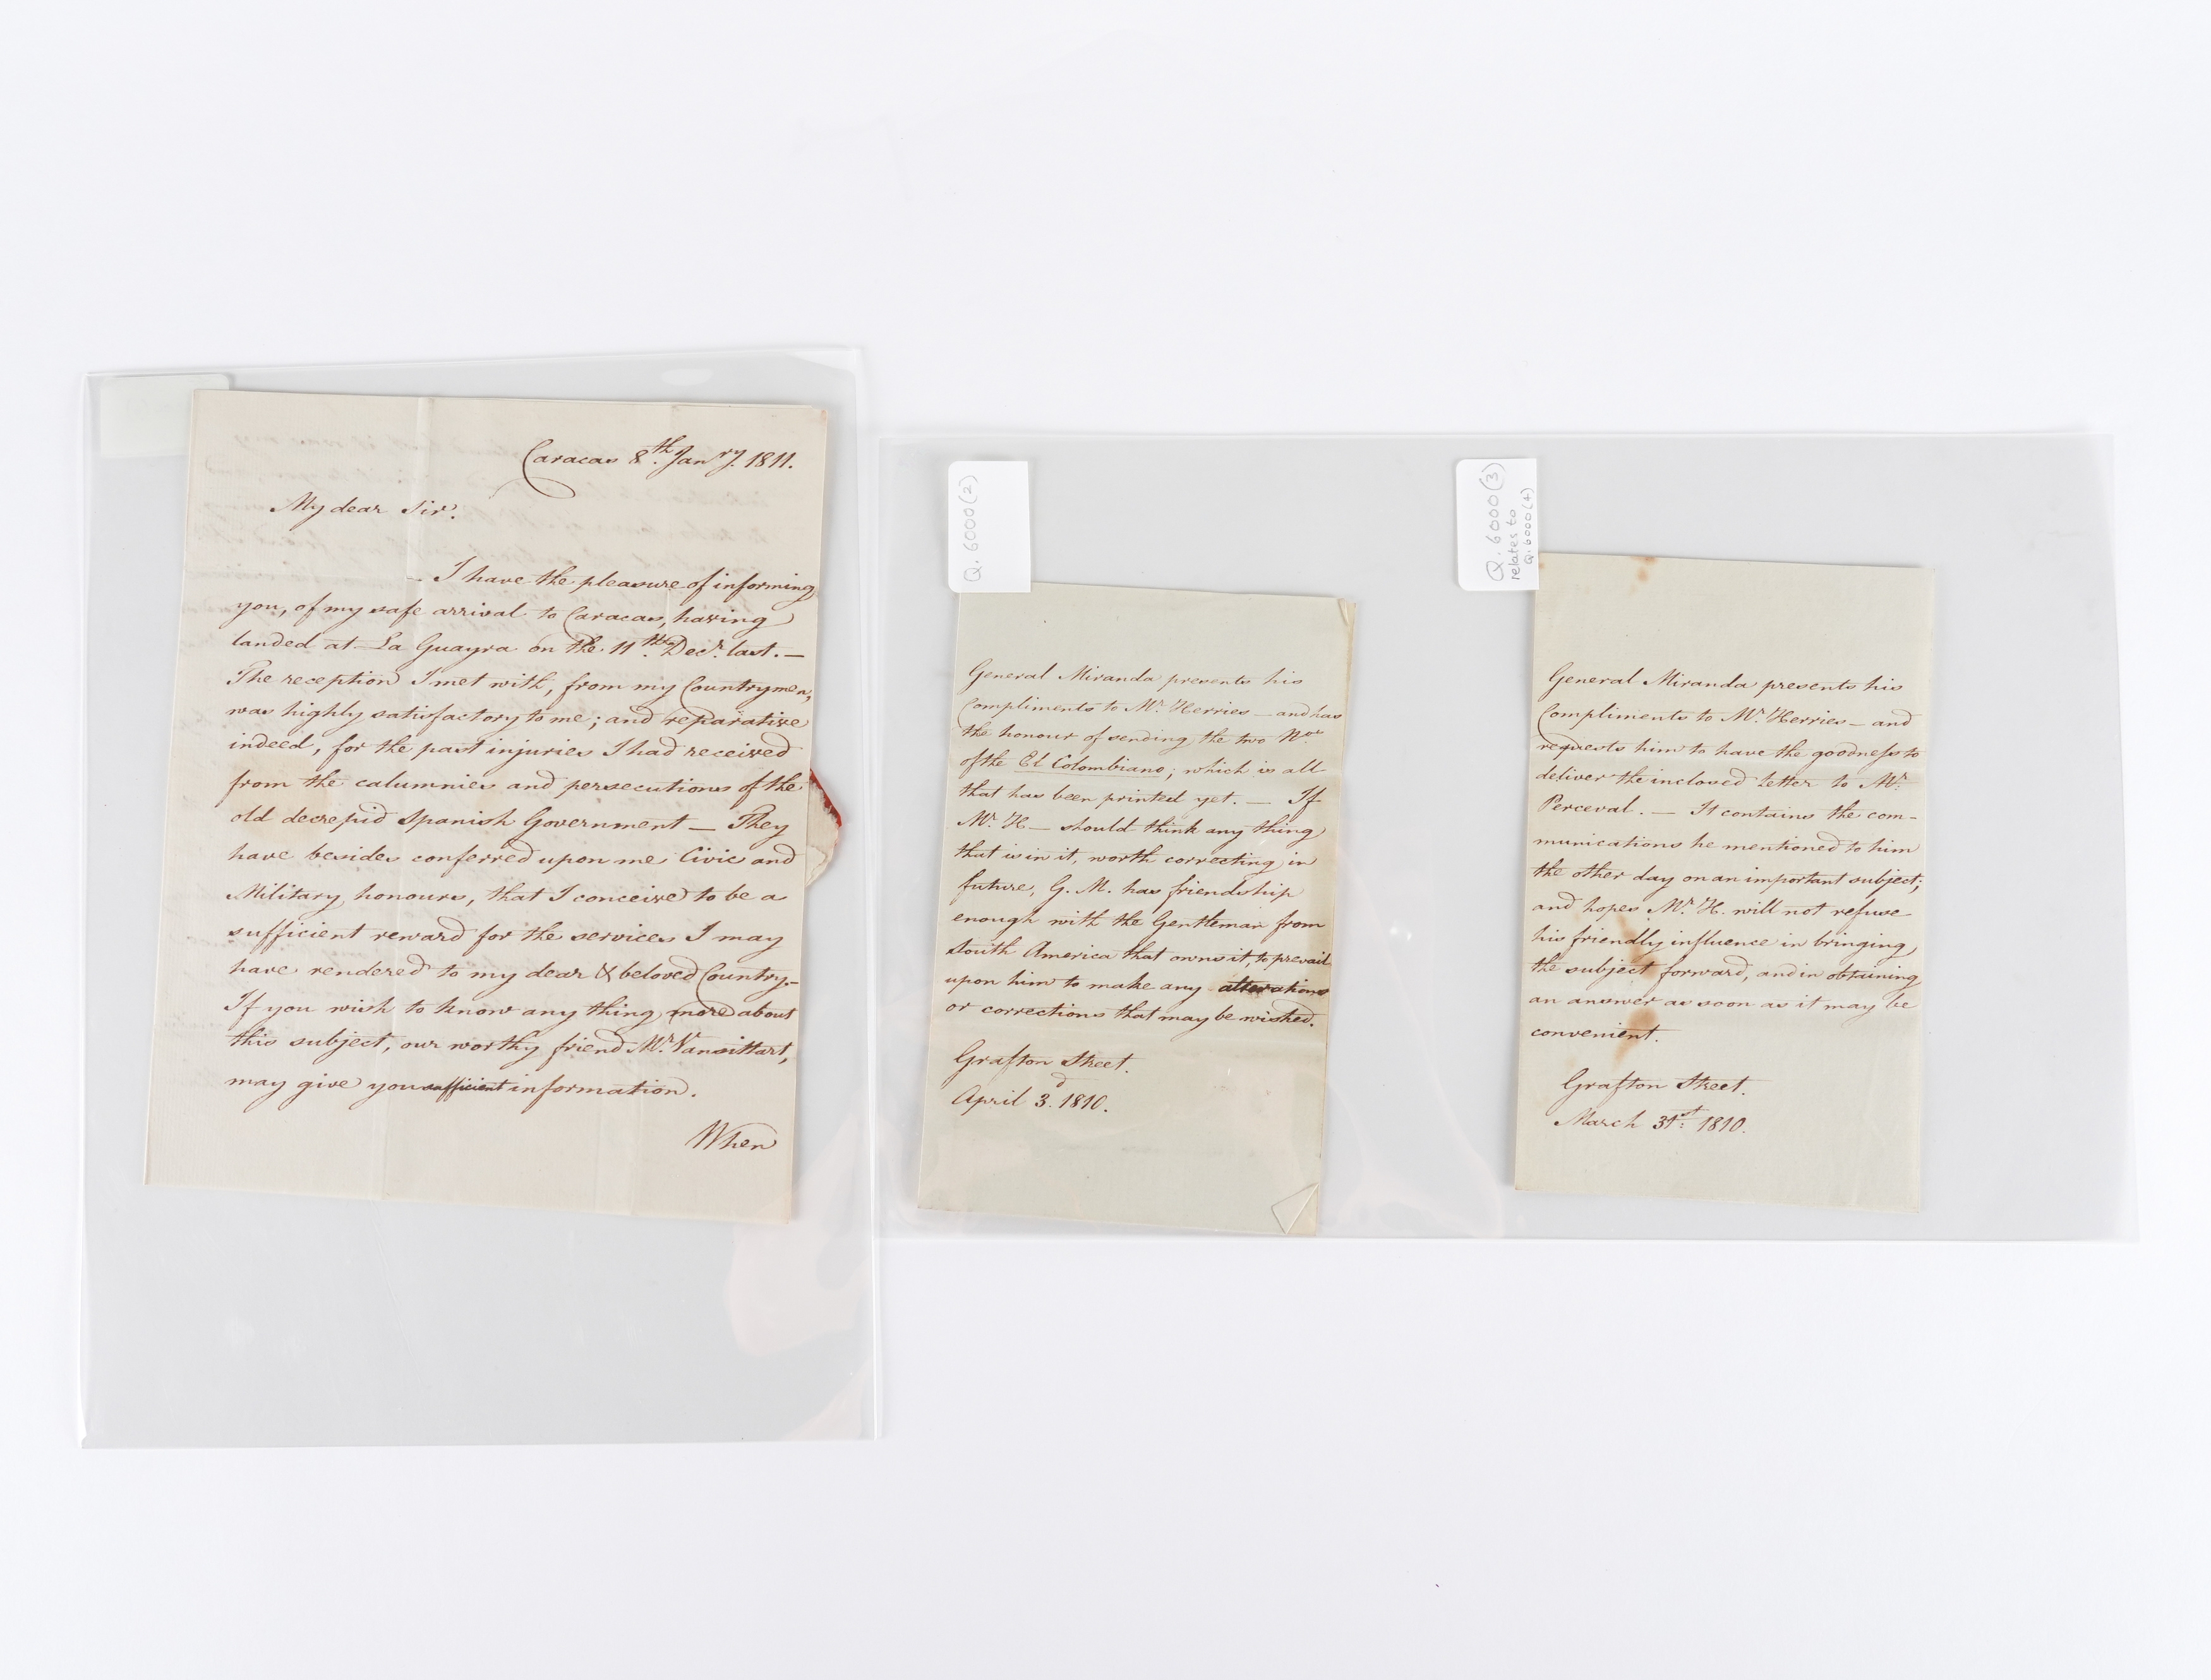 Caracas 8.th Janry. 1811.
My dear Sir.
– I have the pleasure of informing
you, of my safe arrival to Caracas, having
landed at La Guayra on the 11.th Decr. last. —
The reception I met with, from my Countrymen,
was highly satisfactory to me; and reparative
indeed, for the past injuries I had received
from the calumnies and persecutions of the
old decrepid Spanish Government — They
have besides conferred upon me Civic and
Military honours, that I conceive to be a
sufficient reward for the services I may
have rendered to my dear & beloved Country.–
If you wish to know any thing more about
this subject, our worthy friend Mr. Vansittart,
may give you sufficient information.
When
Q. 6000 (2)
General Miranda presents his
Compliments to Mr. Herries — and has
the honour of sending the two Nos.
of the El Colombiano; which is all
that has been printed yet. — If
Mr. H — should think any thing
that is in it, worth correcting in
future, G. M. has friendship
enough with the Gentleman from
South America that owns it, to prevail
upon him to make any alterations
or corrections that may be wished.
Grafton Street.
April 3.d 1810.
Q. 6000 (3)
relates to
Q. 6000 (4)
General Miranda presents his
Compliments to Mr. Herries — and
requests him to have the goodness to
deliver the inclosed Letter to Mr.
Perceval. — It contains the com-
munications he mentioned to him
the other day on an important subject;
and hopes Mr. H. will not refuse
his friendly influence in bringing
the subject forward, and in obtaining
an answer as soon as it may be
convenient.
Grafton Street.
March 31.st 1810.